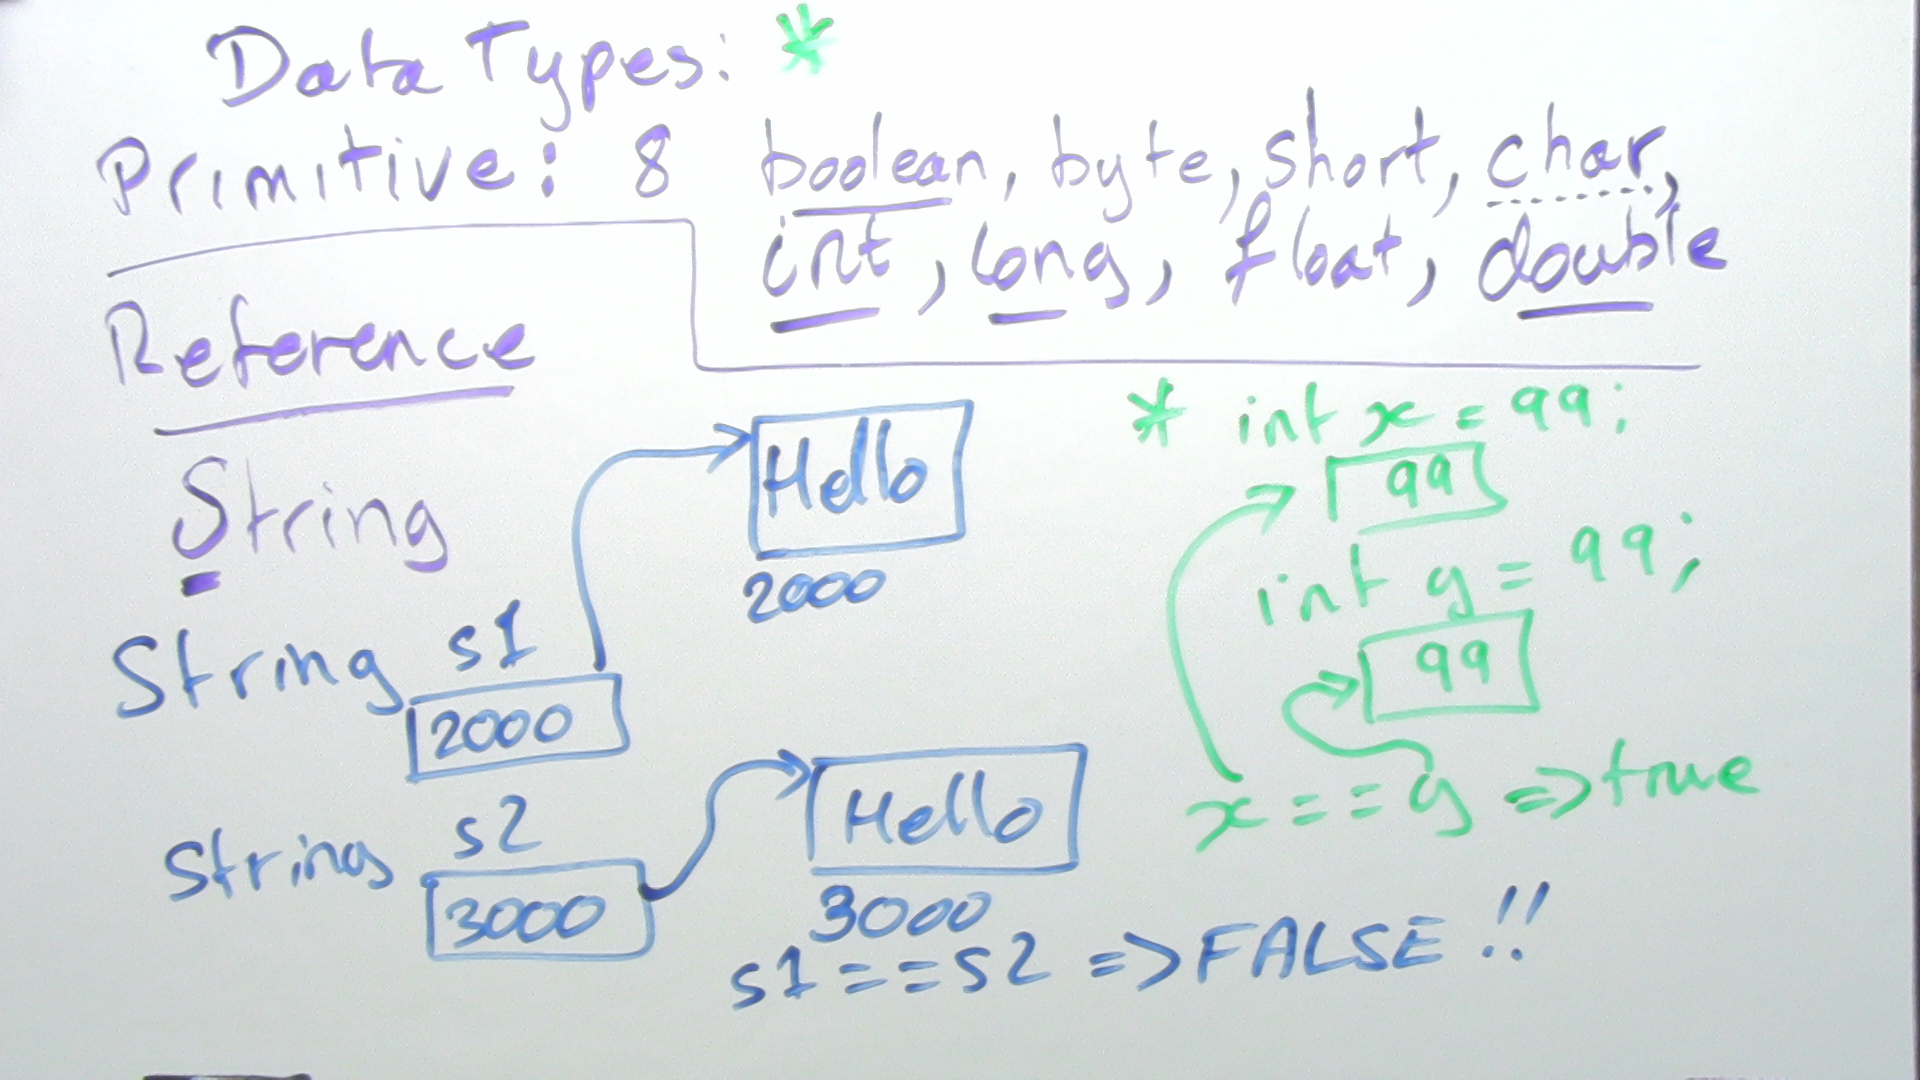 Data Types: *
Primitive: 8 boolean, byte, short, char,
int, long, float, double
Reference
String
Hello
2000
String s1
2000
String s2
3000
Hello
3000
s1 == s2 => FALSE !!
* int x = 99;
99
int y = 99;
99
x == y => true